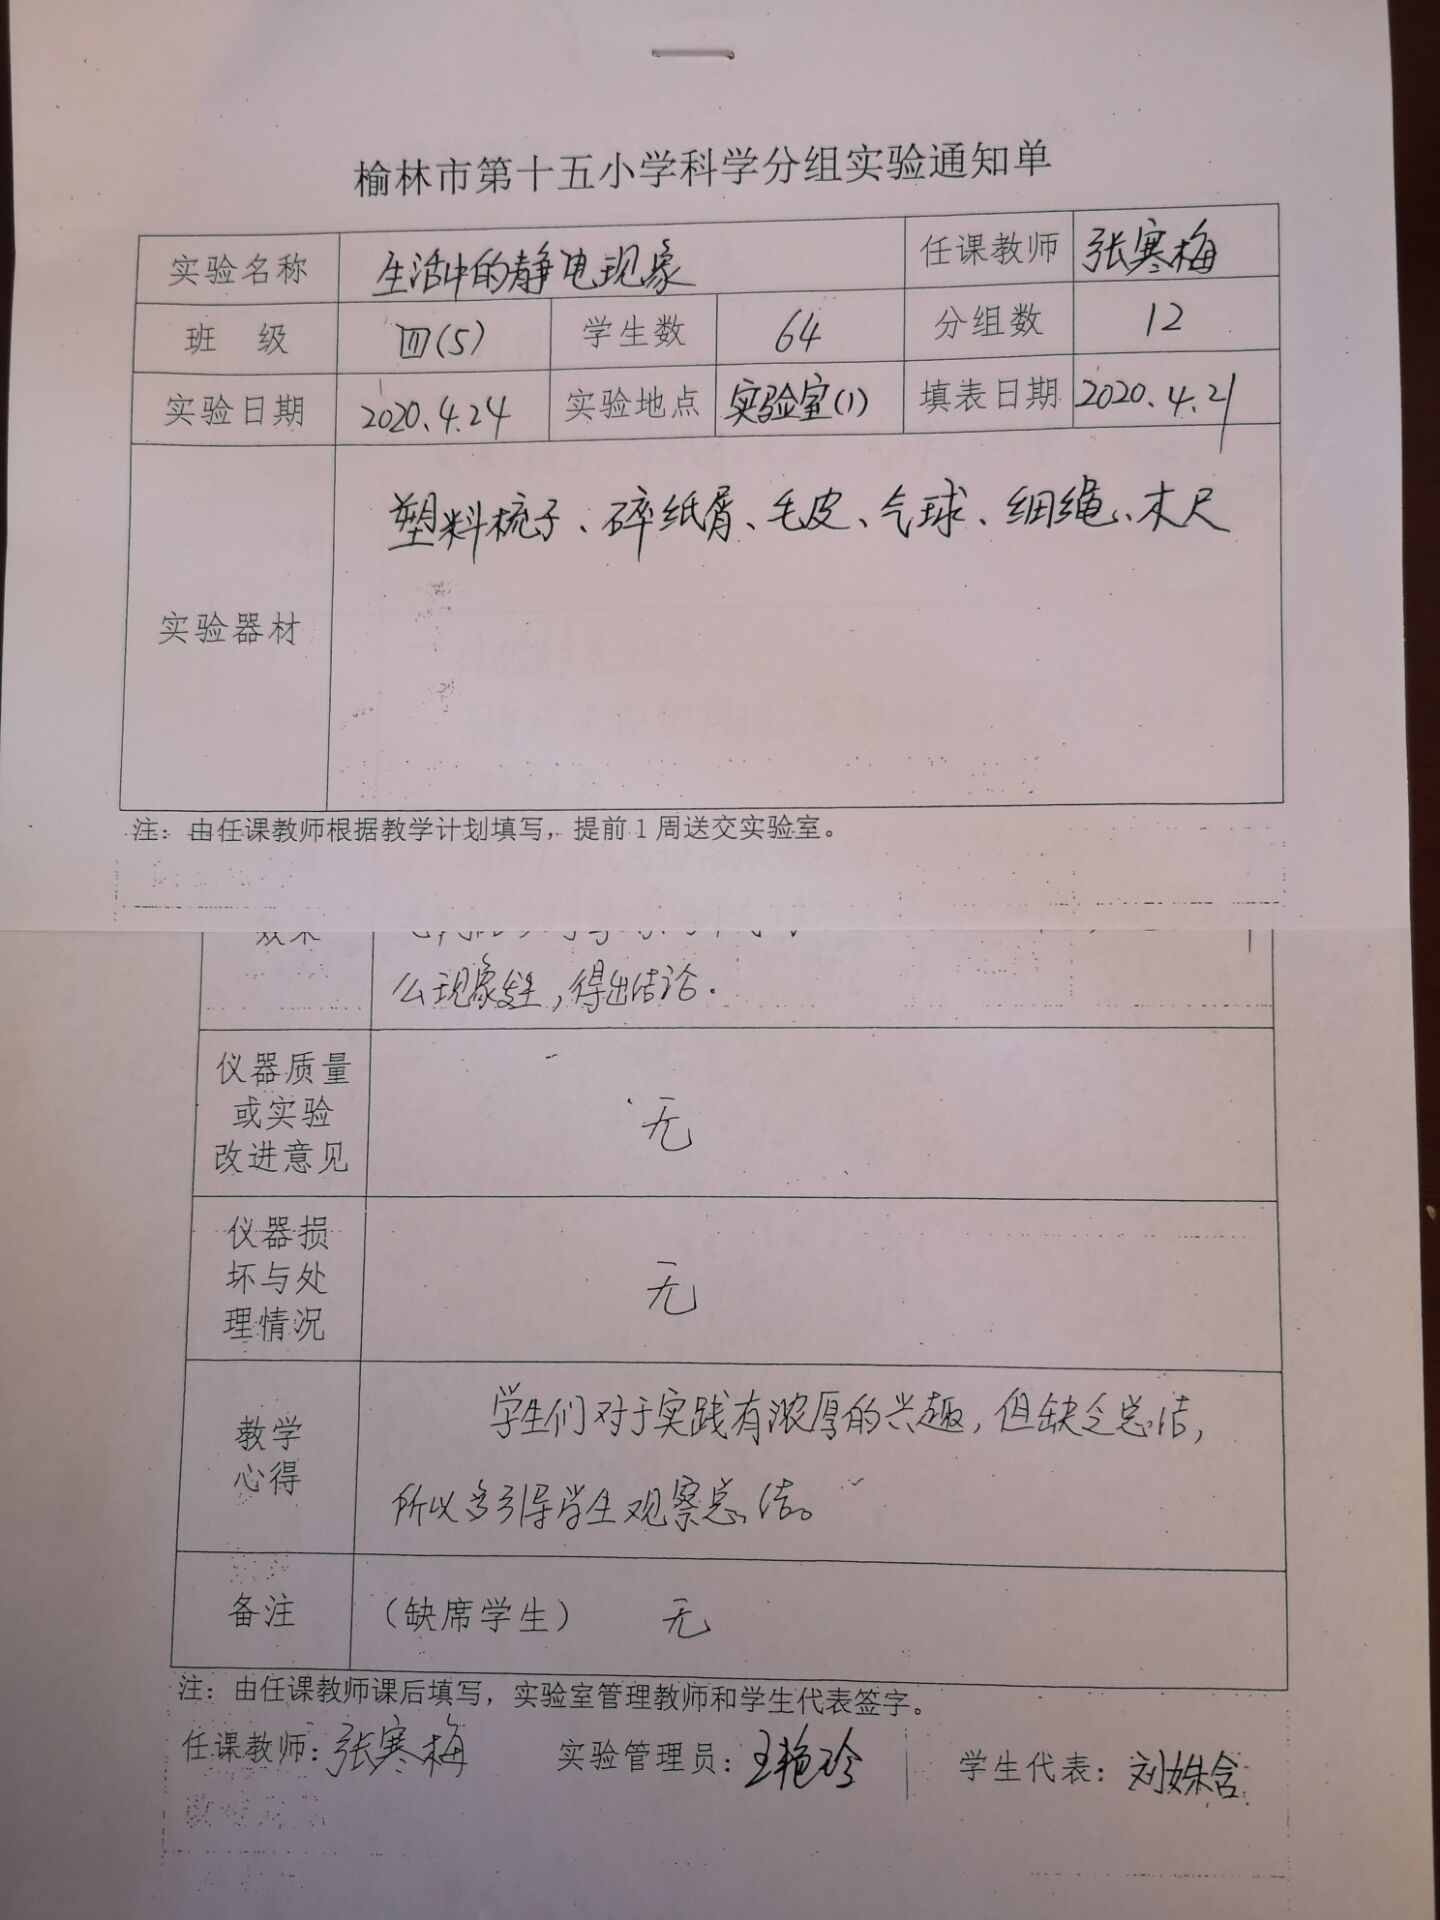 榆林市第十五小学科学分组实验通知单
实验名称 生活中的静电现象 任课教师 张寒梅
班 级 四(5) 学生数 64 分组数 12
实验日期 2020.4.24 实验地点 实验室(1) 填表日期 2020.4.21
实验器材 塑料梳子、碎纸屑、毛皮、气球、细绳、木尺
注：由任课教师根据教学计划填写，提前1周送交实验室。
效果
么现象发生，得出结论.
仪器质量
或实验
改进意见
无
仪器损
坏与处
理情况
无
教学
心得
学生们对于实践有浓厚的兴趣，但缺乏总结，
所以多引导学生观察总结。
备注 （缺席学生） 无
注：由任课教师课后填写，实验室管理教师和学生代表签字。
任课教师：张寒梅 实验管理员：王艳玲 学生代表：刘姝含